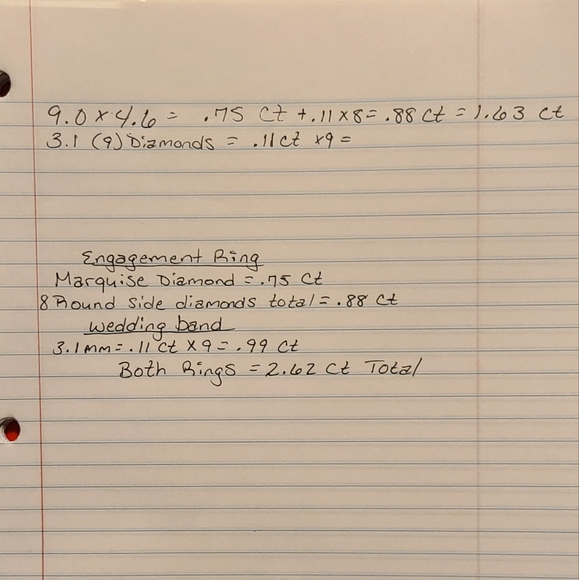 9.0 x 4.6 = .75 ct + .11 x 8 = .88 ct = 1.63 ct
3.1 (9) Diamonds = .11 ct x9 =
Engagement Ring
Marquise Diamond = .75 ct
8 Round side diamonds total = .88 ct
wedding band
3.1mm = .11 ct x 9 = .99 ct
Both Rings = 2.62 ct Total